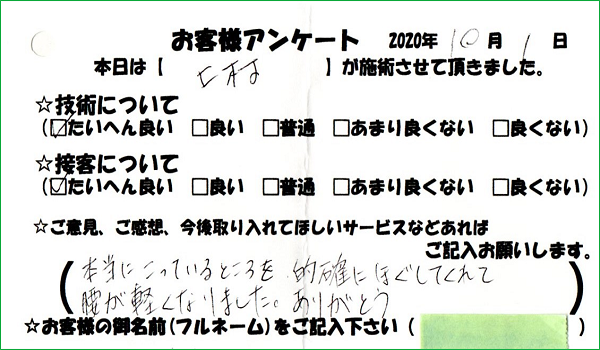 お客様アンケート 2020年 10月 1日
本日は【 上村 】が施術させて頂きました。
☆技術について
(☑たいへん良い □良い □普通 □あまり良くない □良くない)
☆接客について
(☑たいへん良い □良い □普通 □あまり良くない □良くない)
☆ご意見、ご感想、今後取り入れてほしいサービスなどあれば
ご記入お願いします。
(本当にこっているところを 的確にほぐしてくれて
腰が軽くなりました。ありがとう)
☆お客様の御名前(フルネーム)をご記入下さい( )